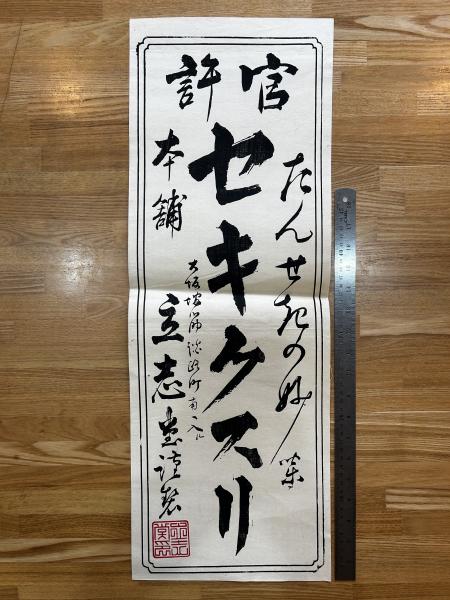 官許
たんせきの妙薬
セキクスリ
大阪堺筋淡路町南へ入ル
本舗
立志堂謹製